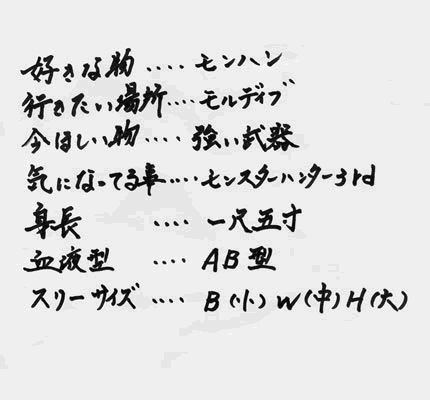 好きな物 ‥‥ モンハン
行きたい場所 ‥‥ モルディブ
今ほしい物 ‥‥ 強い武器
気になってる事 ‥‥ モンスターハンター3rd
身長 ‥‥ 一尺五寸
血液型 ‥‥ AB型
スリーサイズ ‥‥ B(小) W(中) H(大)